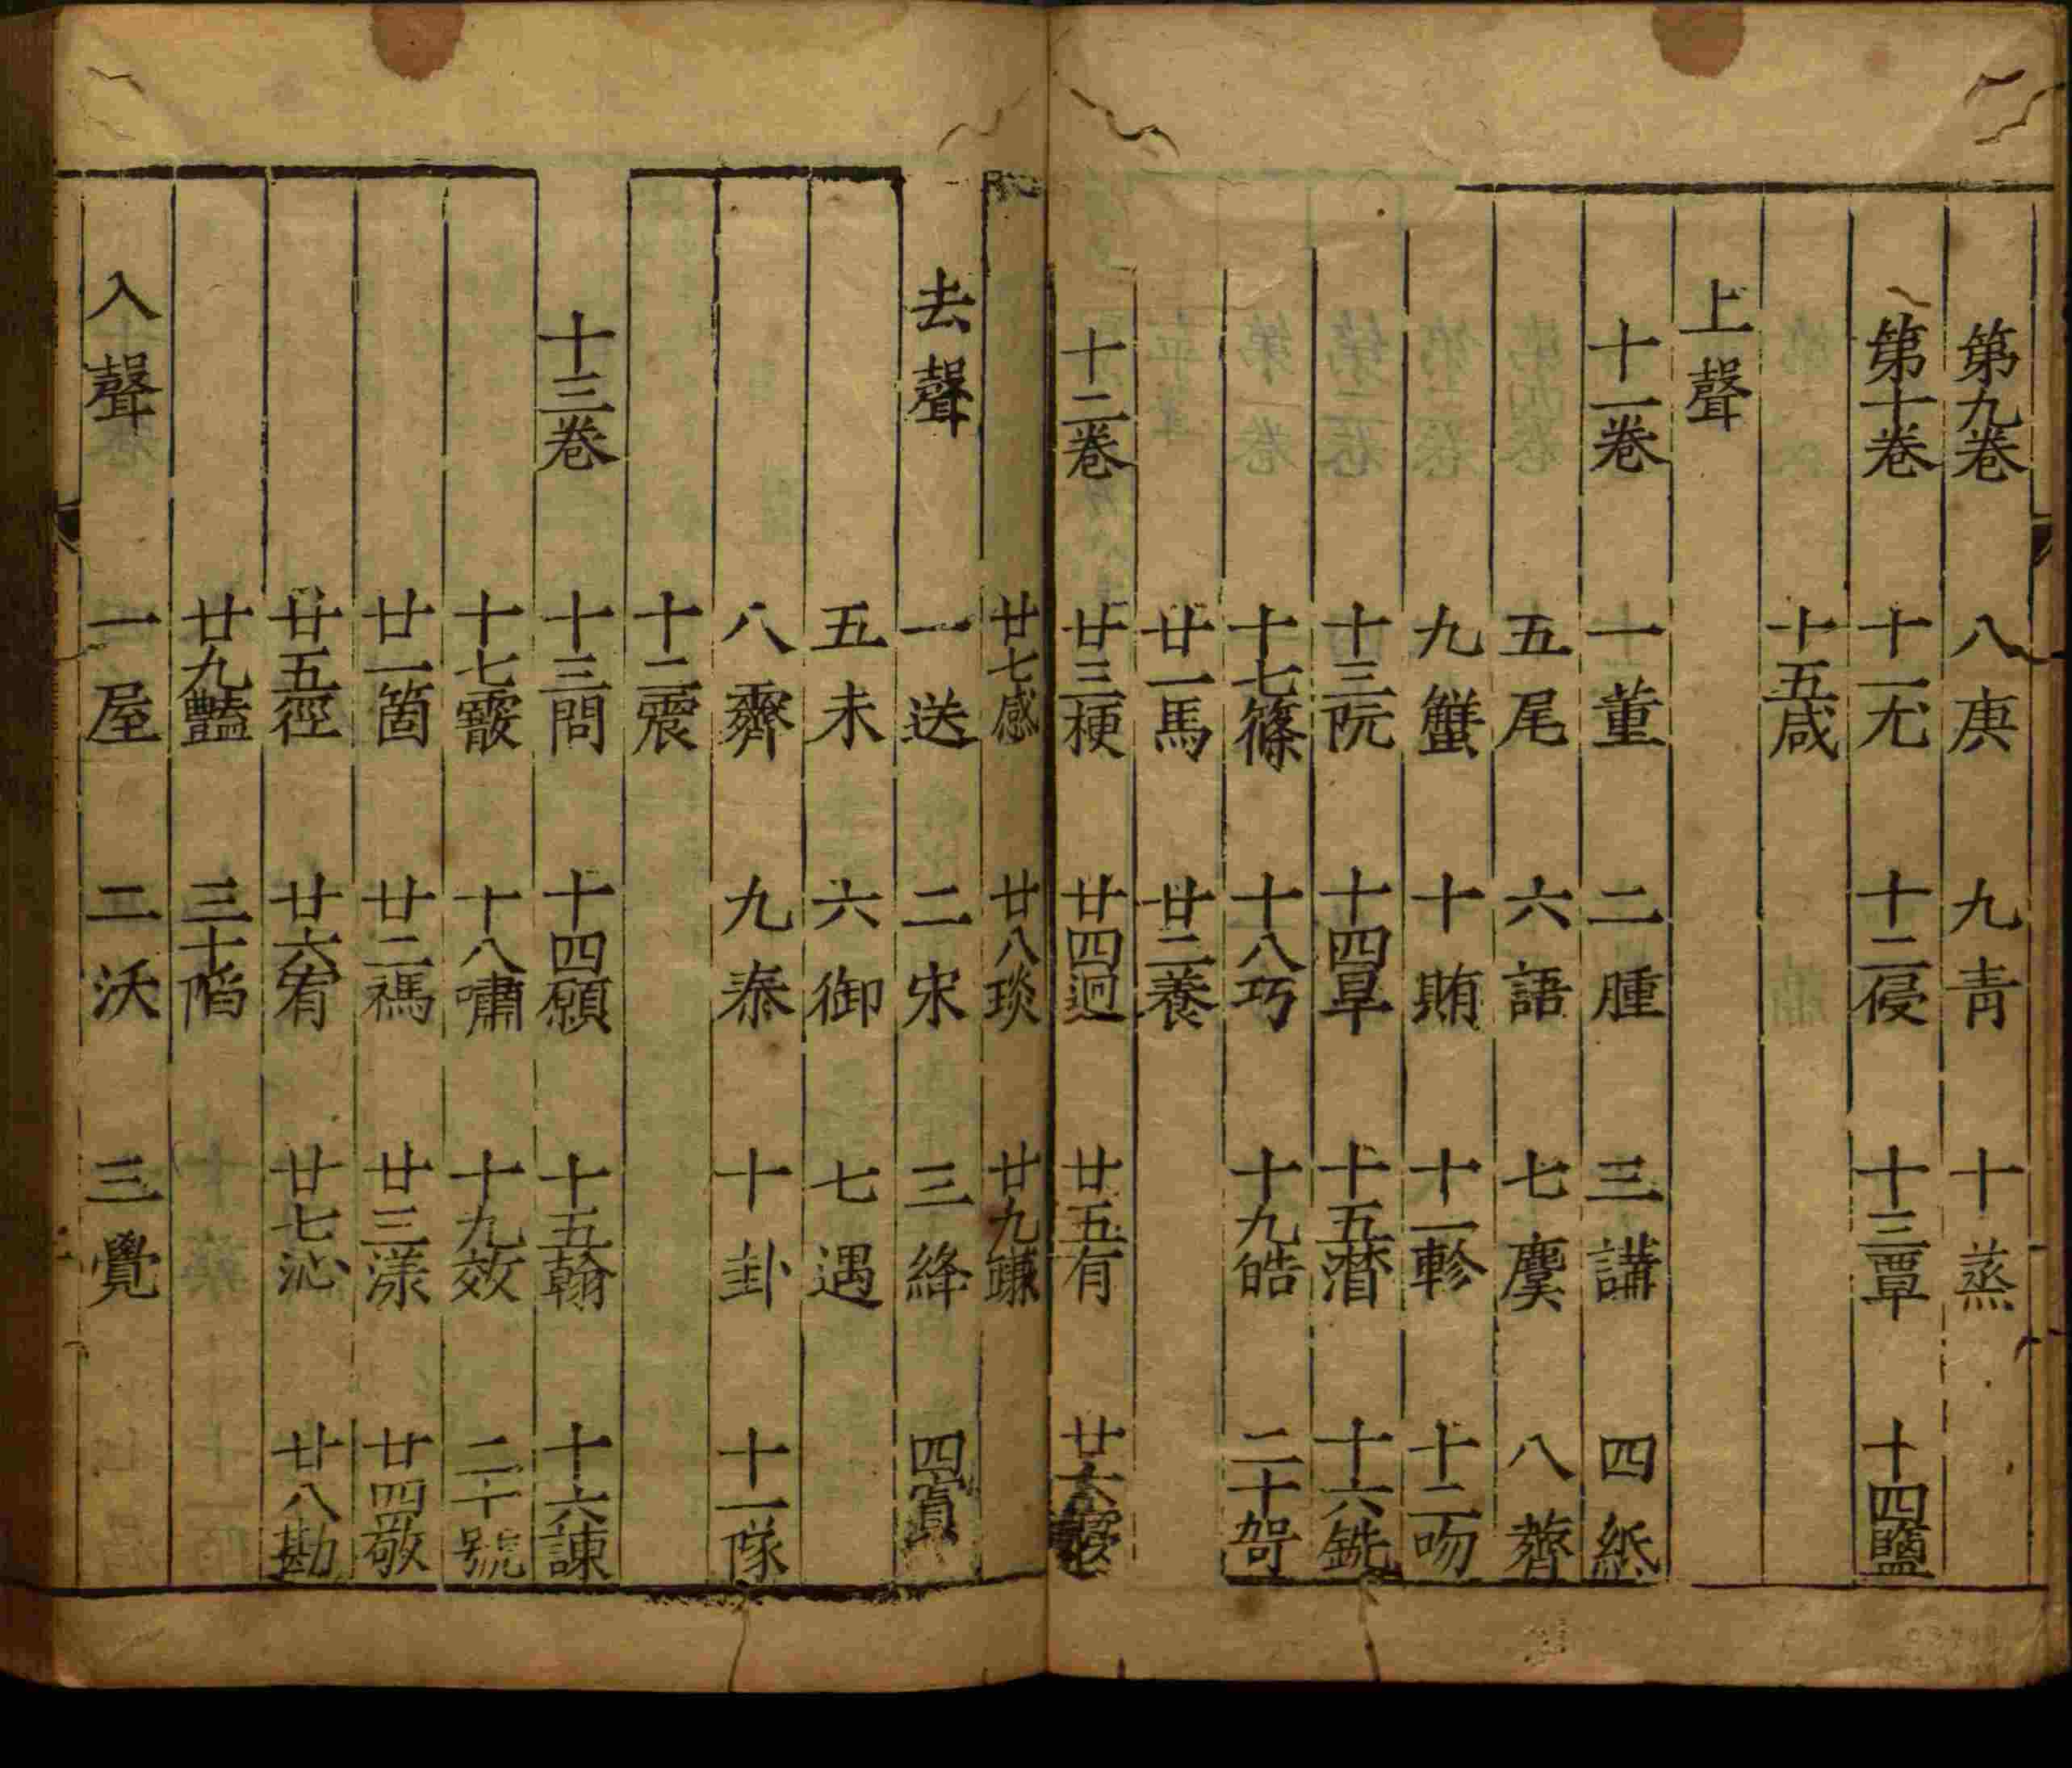 第九卷 八庚 九青 十蒸
第十卷 十一尤 十二侵 十三覃 十四鹽
十五咸
上聲
十一卷 一董 二腫 三講 四紙
五尾 六語 七麌 八薺
九蟹 十賄 十一軫 十二吻
十三阮 十四旱 十五潸 十六銑
十七篠 十八巧 十九皓 二十哿
廿一馬 廿二養
十二卷 廿三梗 廿四迥 廿五有 廿六寢
廿七感 廿八琰 廿九豏
去聲 一送 二宋 三絳 四寘
五未 六御 七遇
八霽 九泰 十卦 十一隊
十二震
十三卷 十三問 十四願 十五翰 十六諫
十七霰 十八嘯 十九效 二十號
廿一箇 廿二禡 廿三漾 廿四敬
廿五徑 廿六宥 廿七沁 廿八勘
廿九豔 三十陷
入聲 一屋 二沃 三覺